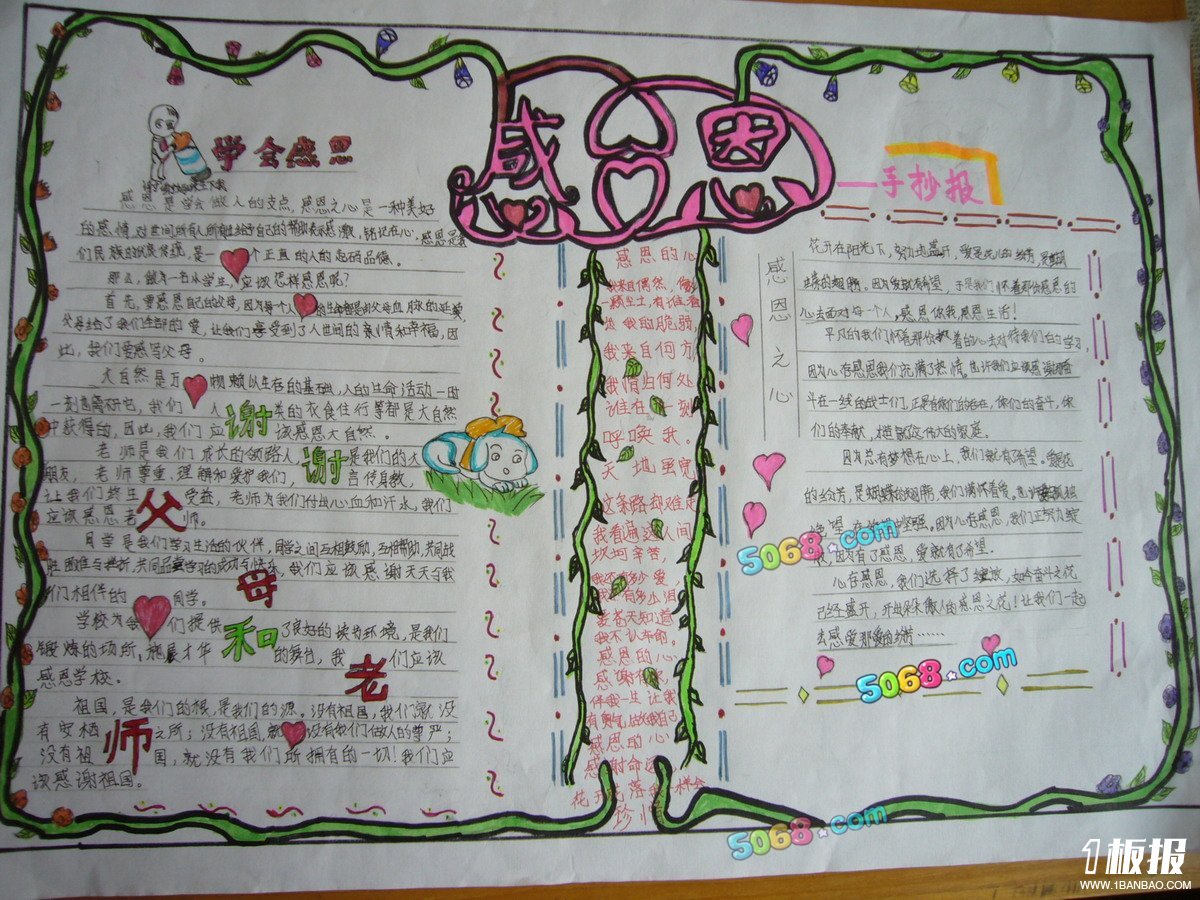 感恩
手抄报
学会感恩
感恩是学会做人的支点,感恩之心是一种美好
的感情,对世间所有人所有
给予自己的帮助表示感激,铭记在心,感恩是我
们民族的优良传统,是一个正直的人的起码品德。
那么,做为一名小学生,应该怎样感恩呢?
首先,要感恩自己的父母,因为每个人的生命都是父母血脉的延续,
父母给了我们全部的爱,让我们享受到了人世间的亲情和幸福,因
此,我们要感写父母。
大自然是万物赖以生存的基础,人的生命活动一时
一刻也离不开它,我们人类的衣食住行等都是大自然
中获得的,因此,我们应该感恩大自然。
老师是我们成长的领路人,是我们的大
朋友,老师尊重,理解和爱护我们,言传身教,
让我们终生受益,老师为我们付出心血和汗水,我们
应该感恩老师。
同学是我们学习生活的伙伴,同学之间互相鼓励,互相帮助,共同战
胜困难与挫折,共同品尝学习的成功与快乐,我们应该感谢天天与我
们相伴的同学。
学校为我们提供了良好的读书环境,是我们
锻炼的场所,施展才华的舞台,我们应该
感恩学校。
祖国,是我们的根,是我们的源。没有祖国,我们就没
有安栖之所;没有祖国,就没有我们做人的尊严;
没有祖国,就没有我们所拥有的一切!我们应
该感谢祖国。
谢
谢
父
母
和
老
师
感恩的心
我来自偶然,像
一颗尘土,有谁看
出我的脆弱,
我来自何方,
我情归何处
谁在下一刻
呼唤我。
天地虽宽
这条路却难走
我看遍这人间
坎坷辛苦,
我还有多少爱,
我还有多少泪
要苍天知道
我不认命
感恩的心
感谢有你,
伴我一生 让我
有勇气,做我自己
感恩的心
感谢命运
花开花落我一样会
珍惜
感恩之心
花开在阳光下,努力地盛开,
心去面对每一个人,感恩你我感恩生活!
平凡的我们怀着那份执着的心去对待我们自己的学习,
因为心存感恩我们充满了热情。也许我们应该感谢那些奋
斗在一线的战士们,正是有你们的存在,你们的奋斗,你
们的奉献,才造就这伟大的家庭。
因为总有梦想在心上,我们就有希望。
因为心存感恩,我们正努力绽
放,因为有了感恩,爱就有了希望。
心存感恩,我们选择了绽放,如今奋斗之花
已经盛开,开出朵朵傲人的感恩之花!让我们一起
去感受那爱的
5068.com
5068.com
5068.com
1板报
WWW.1BANBAO.COM